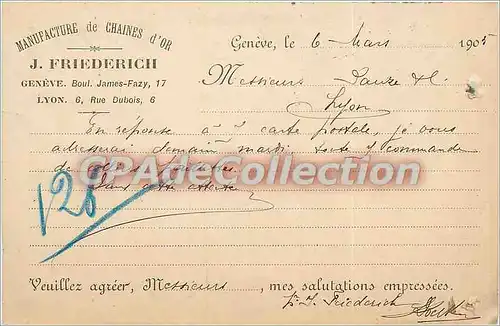 MANUFACTURE de CHAINES d'OR
J. FRIEDERICH
GENÈVE. Boul. James-Fazy, 17
LYON. 6, Rue Dubois, 6
Genève, le 6 Mars 1905
Messieurs
Lyon
En réponse à carte postale, je vous
adresserai demain mardi commande
de
Dans cette attente
128
CPAdeCollection
Veuillez agréer, Messieurs, mes salutations empressées.
J. Friederich